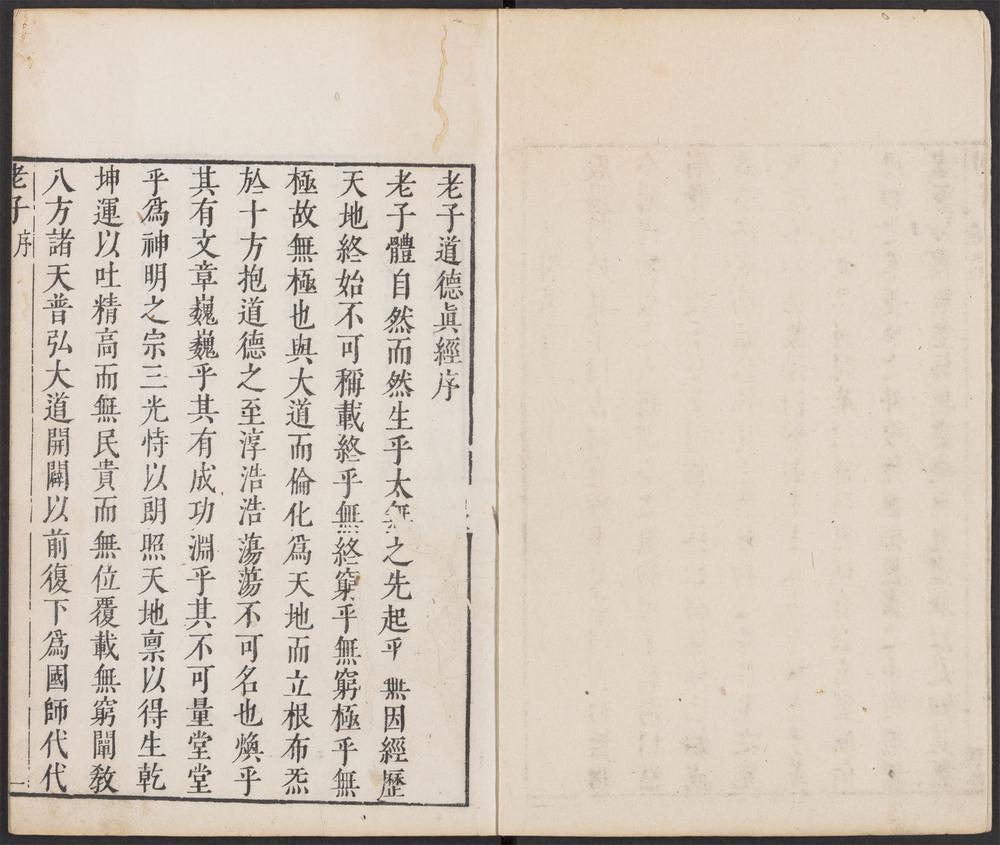 老子道德眞經序
老子體自然而然生乎太無之先起乎無因經歷
天地終始不可稱載終乎無終窮乎無窮極乎無
極故無極也與大道而倫化爲天地而立根布炁
於十方抱道德之至淳浩浩蕩蕩不可名也煥乎
其有文章巍巍乎其有成功淵乎其不可量堂堂
乎爲神明之宗三光恃以朗照天地禀以得生乾
坤運以吐精高而無民貴而無位覆載無窮闡敎
八方諸天普弘大道開闢以前復下爲國師代代
老子 序 一